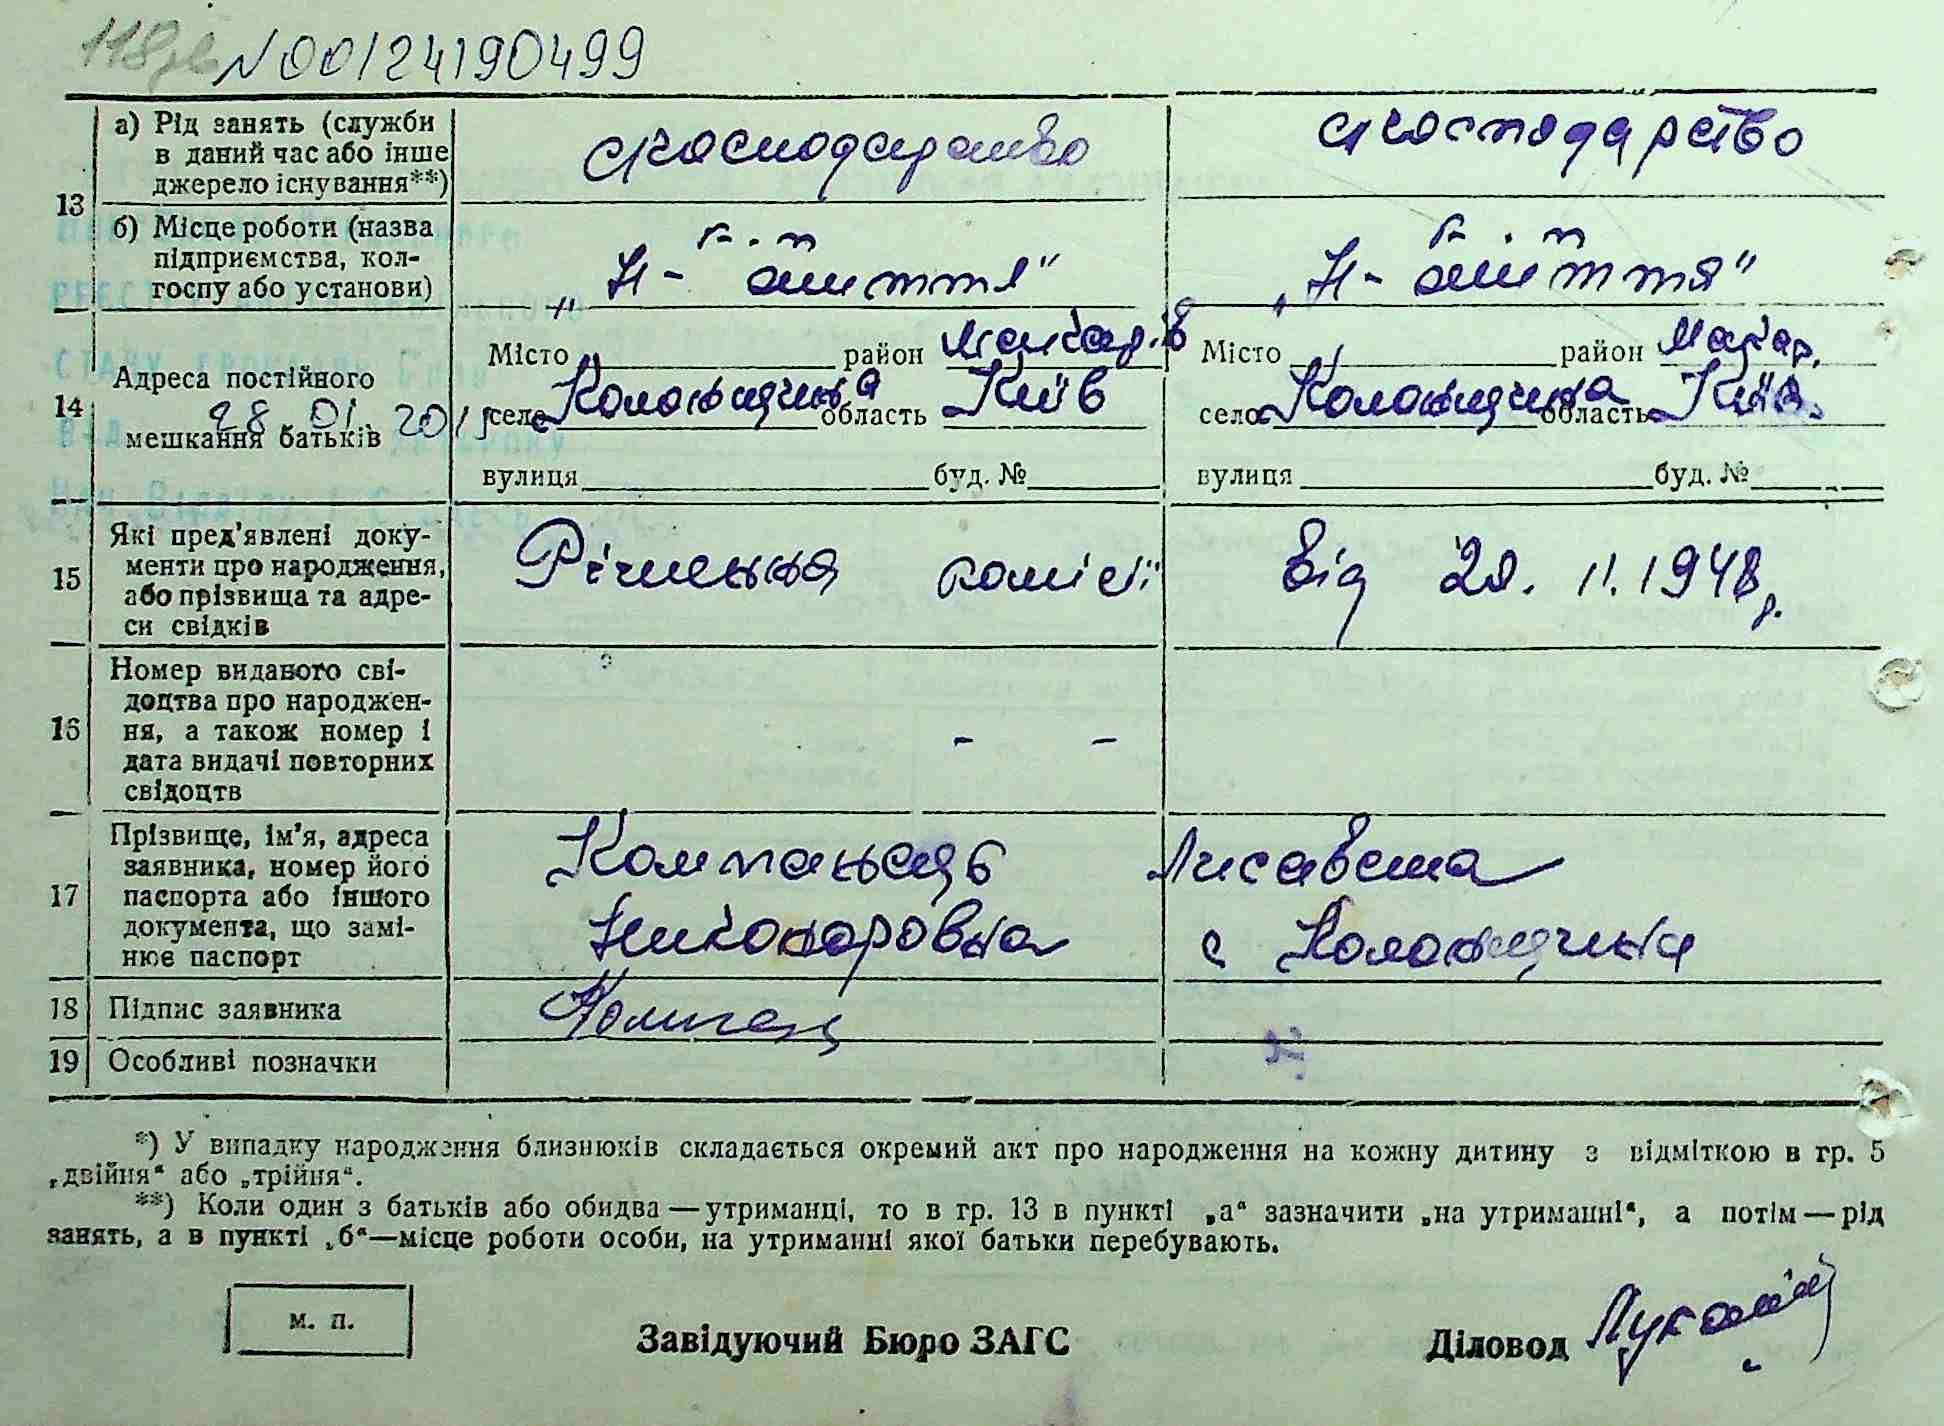 118зв N00124190499
13
а) Рід занять (служби
в даний час або інше
джерело існування**)
с/господарство
с/господарство
б) Місце роботи (назва
підприємства, кол-
госпу або установи)
к-г. п
„Н-життя"
к-г. п
„Н-життя"
14
Адреса постійного
мешкання батьків
28 01. 2015
Місто район Макарів
село Колонщина область Київ
вулиця буд. №
Місто район Макар.
село Колонщина область Київ.
вулиця буд. №
15
Які пред'явлені доку-
менти про народження,
або прізвища та адре-
си свідків
Рішення комісії від 29. II. 1948 р.
16
Номер виданого сві-
доцтва про народжен-
ня, а також номер і
дата видачі повторних
свідоцтв
- -
17
Прізвище, ім'я, адреса
заявника, номер його
паспорта або іншого
документа, що замі-
нює паспорт
Компанець Лисавета
Никоноровна с Колонщина
18
Підпис заявника
Компанец
19
Особливі позначки
*) У випадку народження близнюків складається окремий акт про народження на кожну дитину з відміткою в гр. 5
„двійня" або „трійня".
**) Коли один з батьків або обидва — утриманці, то в гр. 13 в пункті „а" зазначити „на утриманні", а потім — рід
занять, а в пункті „б"—місце роботи особи, на утриманні якої батьки перебувають.
м. п.
Завідуючий Бюро ЗАГС
Діловод